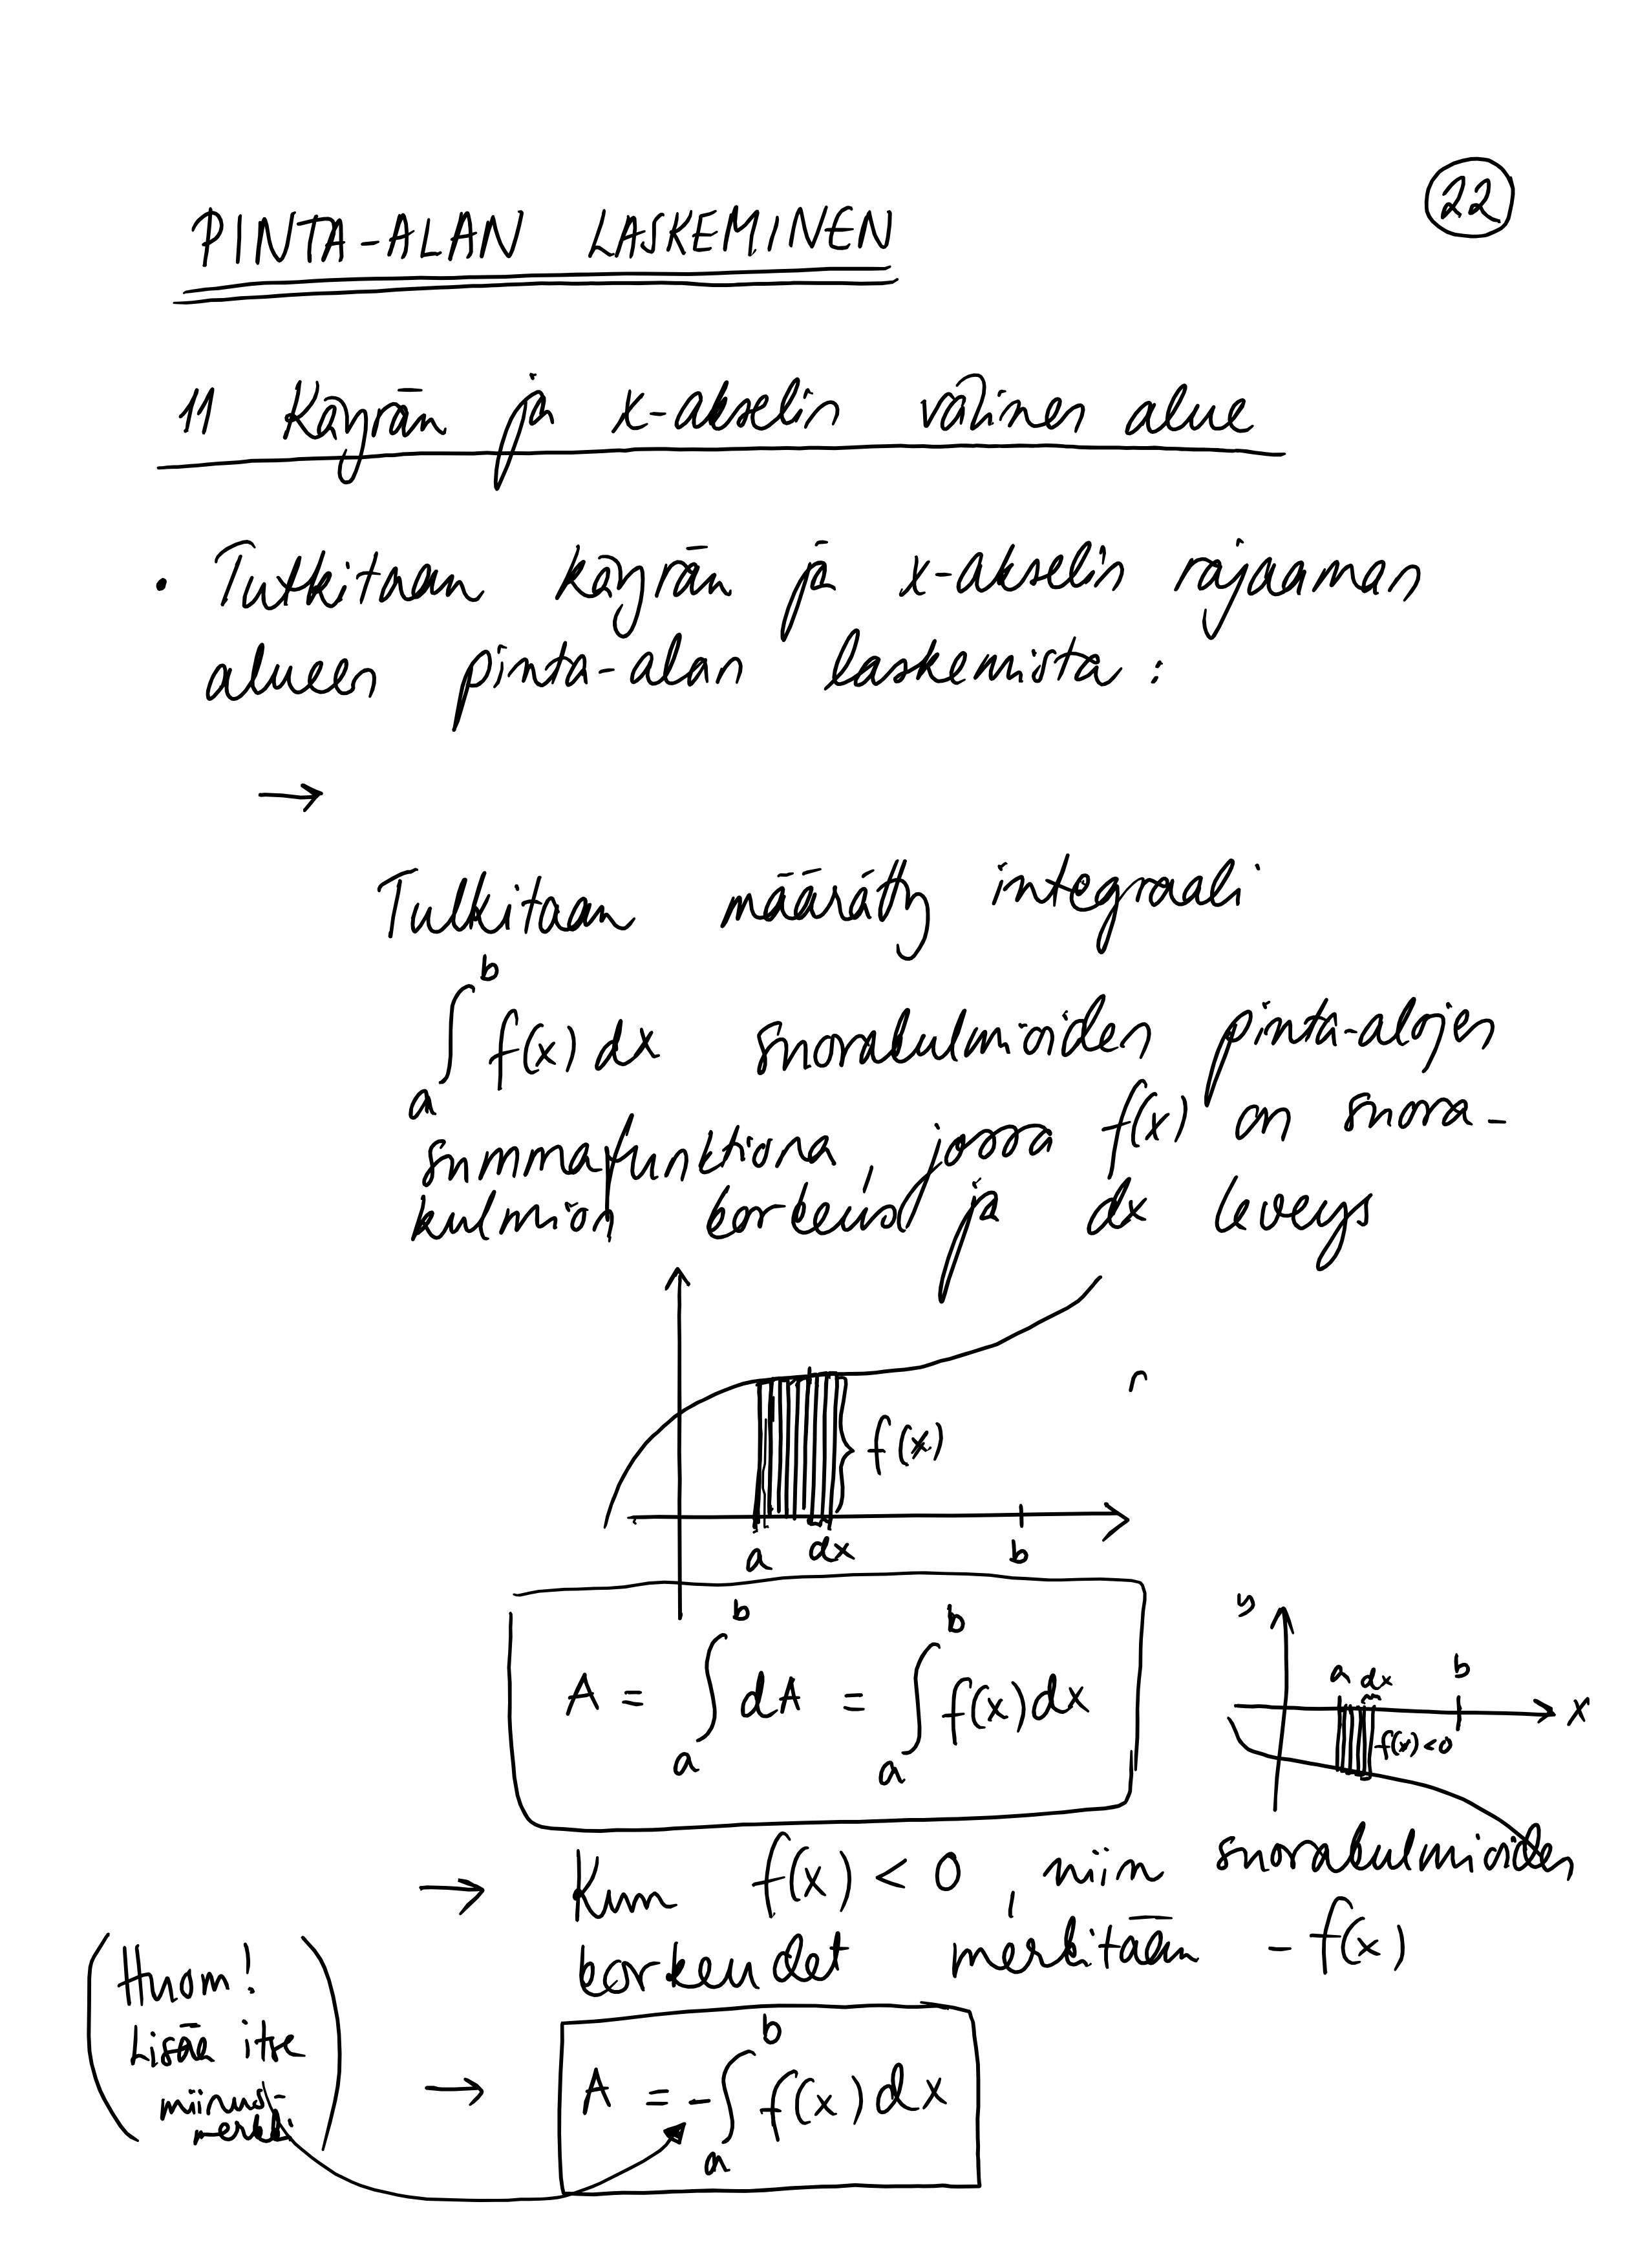 22
PINTA-ALAN LASKEMINEN
11 Käyrän ja x-akselin välinen alue
• Tutkitaan käyrän ja x-akselin rajaaman
alueen pinta-alan laskemista :
→
Tulkitaan määrätty integraali
∫_a^b f(x) dx suorakulmioiden pinta-alojen
summafunktiona, jossa f(x) on suora-
kulmion korkeus ja dx leveys
f(x)
a dx b
A = ∫_a^b dA = ∫_a^b f(x) dx
y
a dx b
x
f(x) < 0
→ Kun f(x) < 0, niin suorakulmioiden
korkeudet merkitään - f(x)
(Huom!
Lisää itse
miinus-
merkki)
→ A = - ∫_a^b f(x) dx